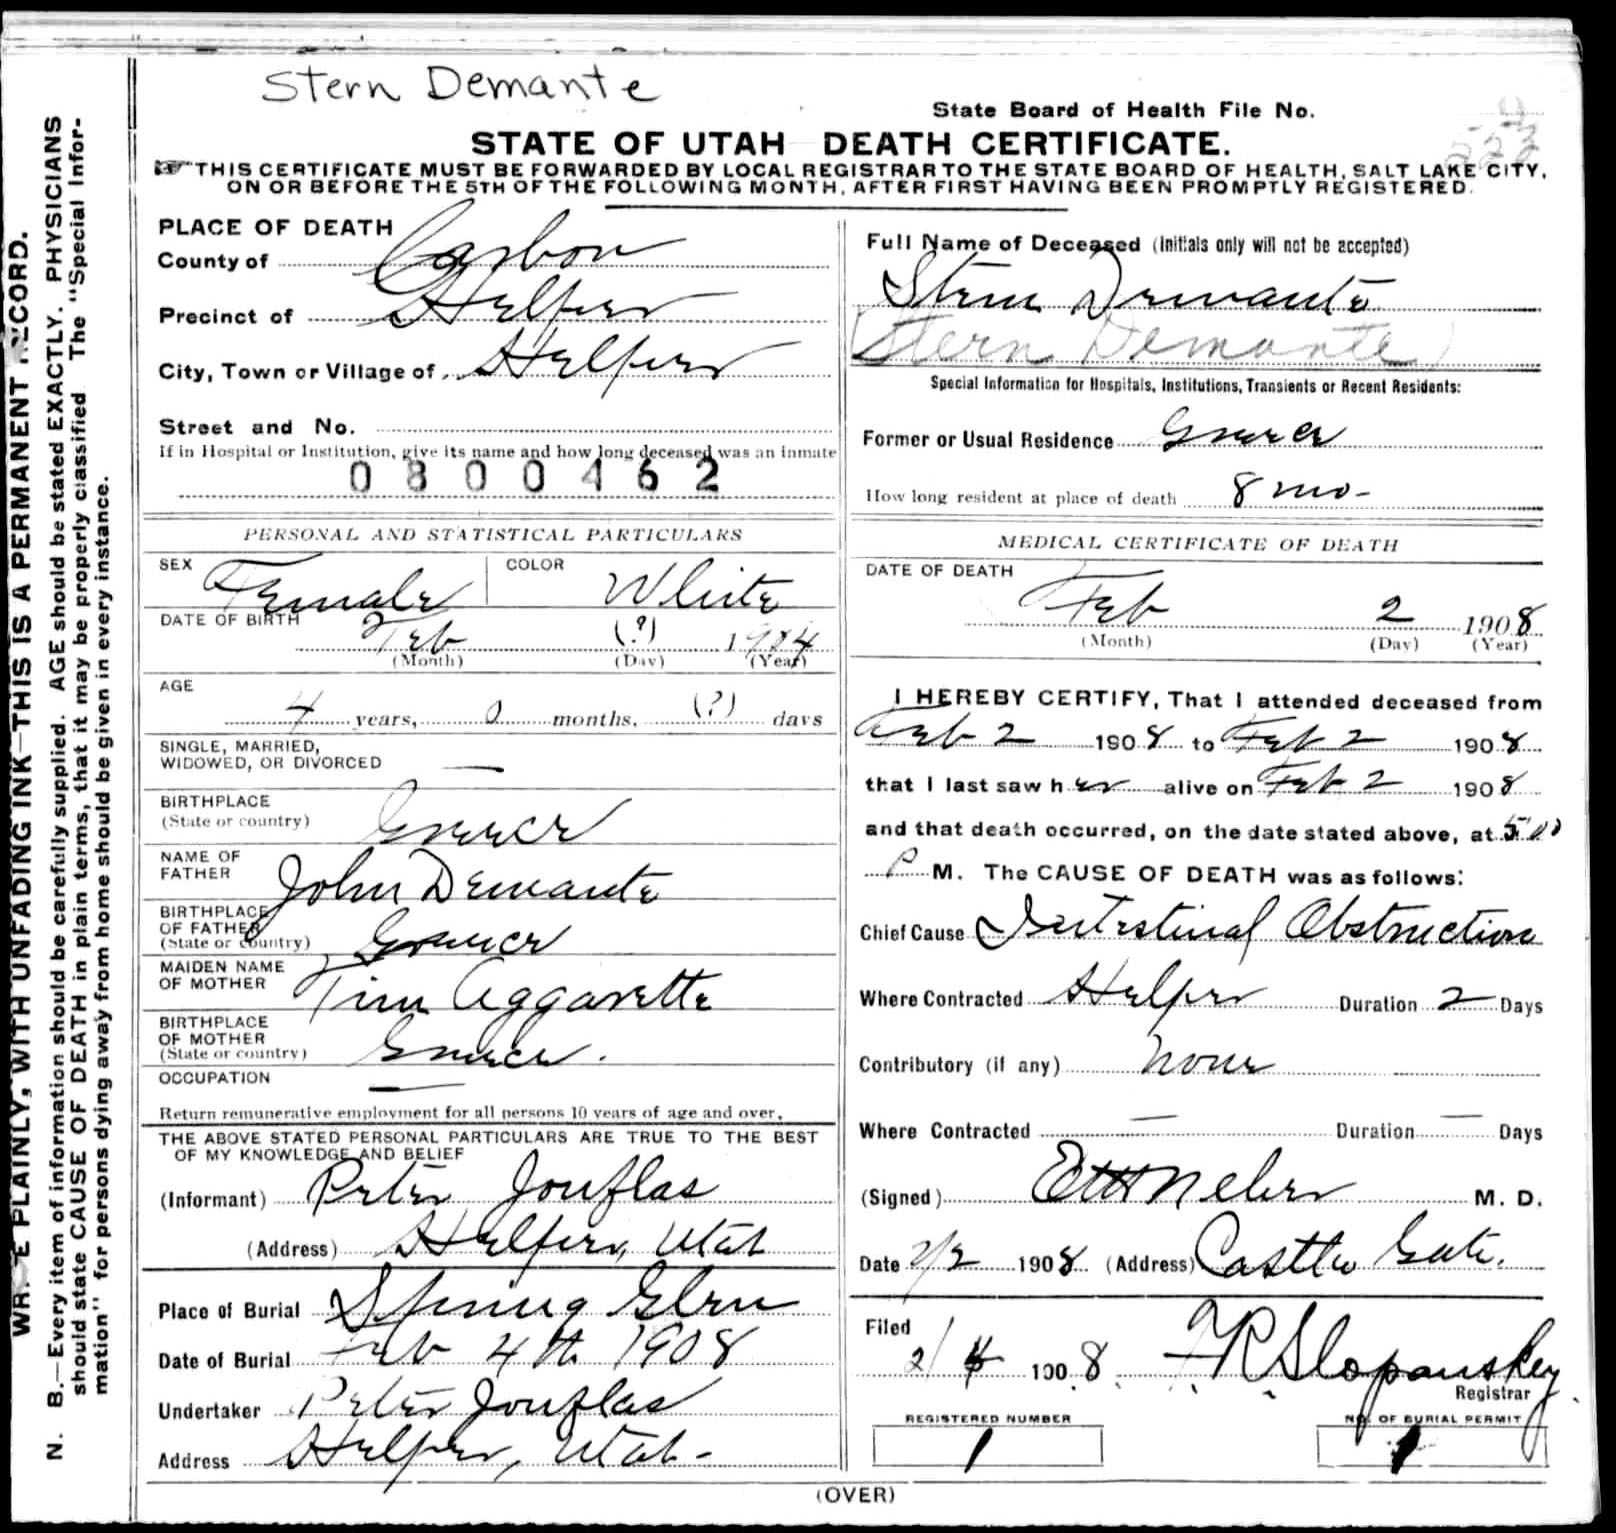 Stern Demante
State Board of Health File No.
STATE OF UTAH DEATH CERTIFICATE.
THIS CERTIFICATE MUST BE FORWARDED BY LOCAL REGISTRAR TO THE STATE BOARD OF HEALTH, SALT LAKE CITY,
ON OR BEFORE THE 5TH OF THE FOLLOWING MONTH, AFTER FIRST HAVING BEEN PROMPTLY REGISTERED.
WRITE PLAINLY, WITH UNFADING INK—THIS IS A PERMANENT RECORD.
N. B.—Every item of information should be carefully supplied. AGE should be stated EXACTLY. PHYSICIANS
should state CAUSE OF DEATH in plain terms, that it may be properly classified. The "Special Infor-
mation" for persons dying away from home should be given in every instance.
PLACE OF DEATH
County of Carbon
Precinct of Helper
City, Town or Village of Helper
Street and No.
If in Hospital or Institution, give its name and how long deceased was an inmate
0800462
PERSONAL AND STATISTICAL PARTICULARS
SEX Female COLOR White
DATE OF BIRTH Feb (?) 1904
(Month) (Day) (Year)
AGE
4 years, 0 months, (?) days
SINGLE, MARRIED,
WIDOWED, OR DIVORCED —
BIRTHPLACE
(State or country) Greece
NAME OF
FATHER John Demante
BIRTHPLACE
OF FATHER
(State or country) Greece
MAIDEN NAME
OF MOTHER Tim Aggarette
BIRTHPLACE
OF MOTHER
(State or country) Greece.
OCCUPATION —
Return remunerative employment for all persons 10 years of age and over.
THE ABOVE STATED PERSONAL PARTICULARS ARE TRUE TO THE BEST
OF MY KNOWLEDGE AND BELIEF
(Informant) Peter Jouflas
(Address) Helper, Utah
Place of Burial Spring Glen
Date of Burial Feb 4th 1908
Undertaker Peter Jouflas
Address Helper, Utah-
Full Name of Deceased (Initials only will not be accepted)
Stern Demante
(Stern Demante)
Special Information for Hospitals, Institutions, Transients or Recent Residents:
Former or Usual Residence Greece
How long resident at place of death 8 mo-
MEDICAL CERTIFICATE OF DEATH
DATE OF DEATH
Feb 2 1908
(Month) (Day) (Year)
I HEREBY CERTIFY, That I attended deceased from
Feb 2 1908 to Feb 2 1908
that I last saw her alive on Feb 2 1908
and that death occurred, on the date stated above, at 5:00
P M. The CAUSE OF DEATH was as follows:
Chief Cause Intestinal Obstruction
Where Contracted Helper Duration 2 Days
Contributory (if any) none
Where Contracted — Duration — Days
(Signed) M. D.
Date 2/2 1908 (Address) Castle Gate.
Filed
2/4 1908. Slopanskey
Registrar
REGISTERED NUMBER
1
NO. OF BURIAL PERMIT
1
(OVER)